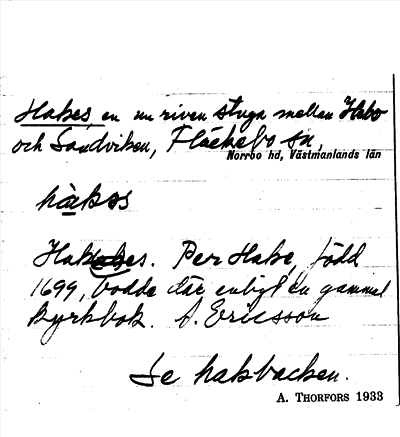 Hakes, en nu riven stuga mellan Hebo
och Sandviken, Fläckebo sn,
Norrbo hd, Västmanlands län
hàkɷs
Hakes. Per Hake, född
1699, bodde där enligt en gammal
kyrkbok. A. Ericsson
Se hakbacken.
A. THORFORS 1933